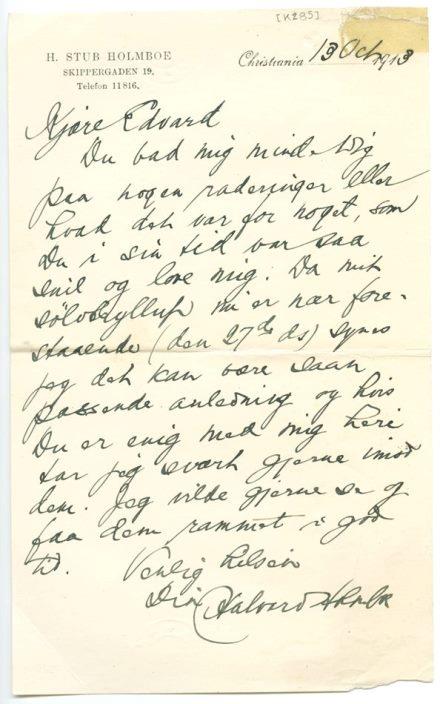 [K285]
H. STUB HOLMBOE
SKIPPERGADEN 19.
Telefon 11816.
Christiania 13 Oct 1913
Kjære Edvard
Du bad mig minde Dig
paa nogen raderinger eller
hvad det var for noget, som
Du i sin tid var saa
snil og love mig. Da mit
sølvbryllup nu er nær fore-
staaende (den 27de ds) synes
jeg det kan være saan
passende anledning og hvis
Du er enig med mig heri
tar jeg svært gjerne imod
dem. Jeg vilde gjerne se og
faa dem rammet i god
tid. Venlig hilsen
Din Halvard Holmboe